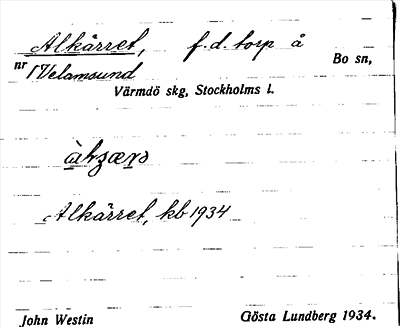 Alkärret, f.d. torp å
nr 1 Velamsund Bo sn,
Värmdö skg, Stockholms l.
Alkärret, kb 1934
John Westin Gösta Lundberg 1934.